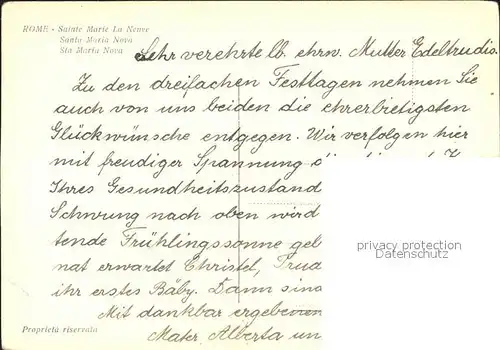 ROME - Sainte Marie La Neuve
Santa Maria Nova
Sta Maria Nova
Sehr verehrte lb. ehrw. Mutter Edeltrudis.
Zu den dreifachen Festtagen nehmen Sie
auch von uns beiden die ehrerbietigsten
Glückwünsche entgegen. Wir verfolgen hier
mit freudiger Spannung
Ihres Gesundheitszustand
Schwung nach oben wird
tende Frühlingssonne gel
nat erwartet Christel, Trud
ihr erstes Bäby. Dann sind
Mit dankbar ergebenen
Mater Alberta un
privacy protection
Datenschutz
Proprietà riservata